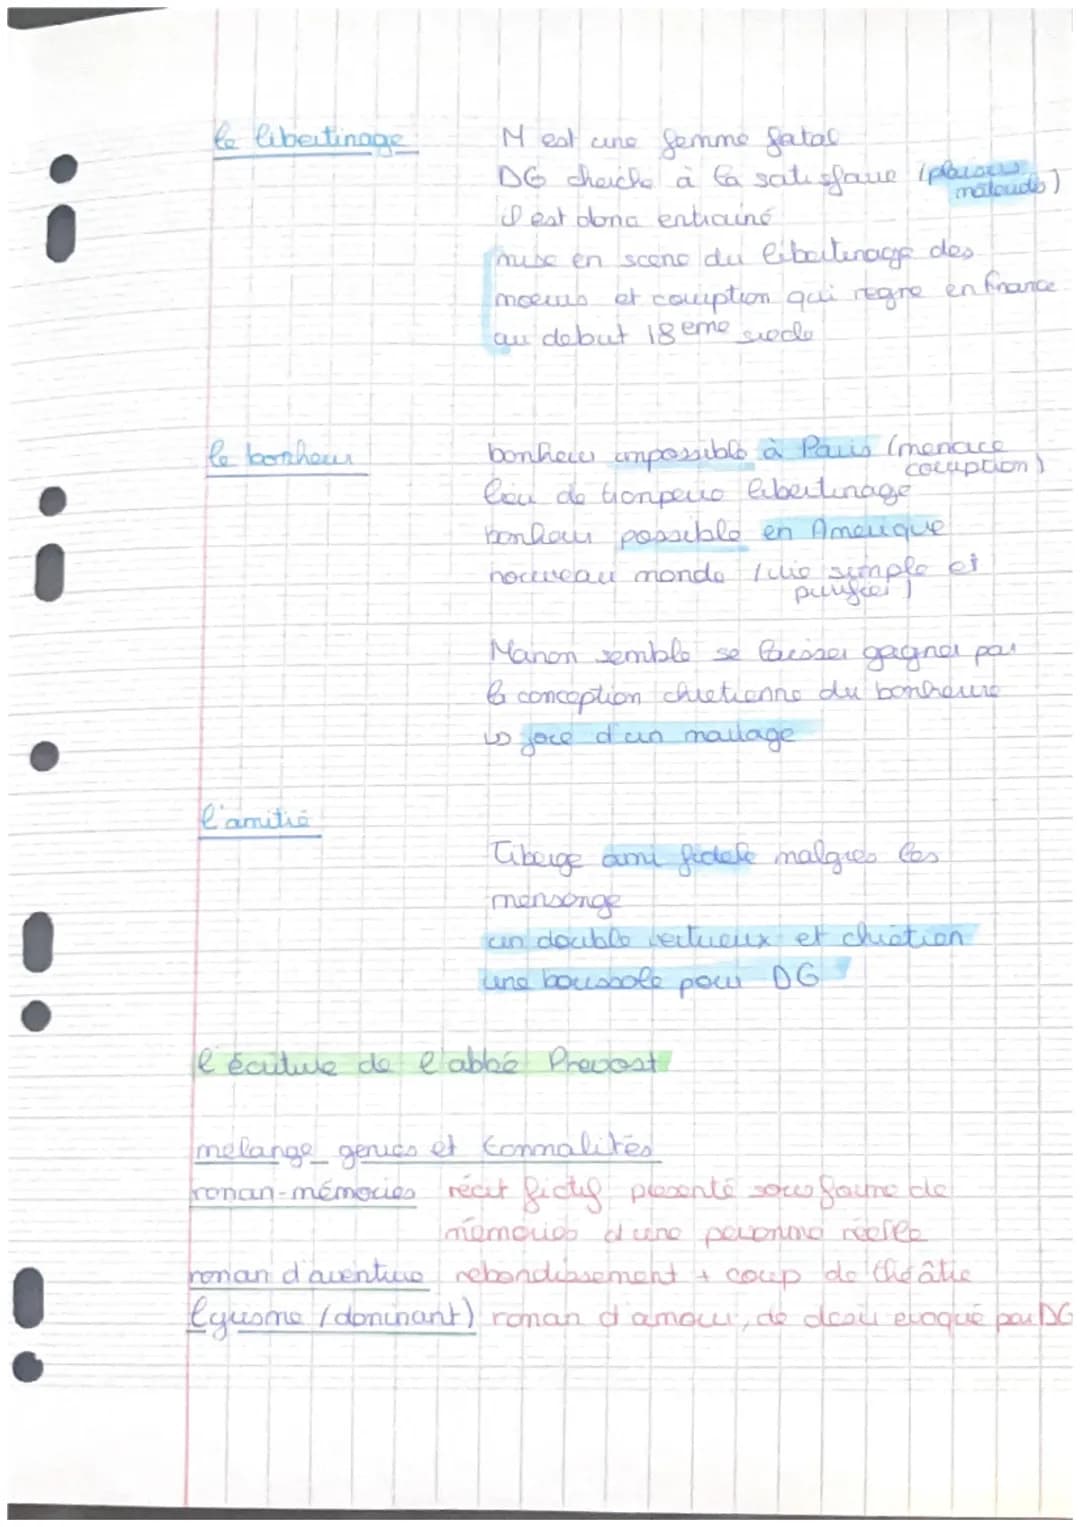 le libertinage
M est une femme fatal
DG cherche à la satisfaire (plaisirs
matériels)
il est donc entrainé
mise en scene du libertinage des
moeurs et corruption qui regne en france
au debut 18 eme siecle
le bonheur
bonheur impossible à Paris (menace
corruption)
lieu de tromperie libertinage
bonheur possible en Amerique
nouveau monde (vie simple et
purifier)
Manon semble se laisser gagner par
la conception chretienne du bonheure
↳ force d'un mariage
l'amitié
Tiberge ami fidele malgres les
mensonge
un double vertueux et chretien
une boussole pour DG
l'écriture de l'abbé Prevost
melange genres et tonnalités
roman-mémoires récit fictif présenté sous forme de
mémoires d'une personne réelle
roman d'aventure rebondissement + coup de théâtre
lyrisme (dominant) roman d'amour, de désir evoqué par DG